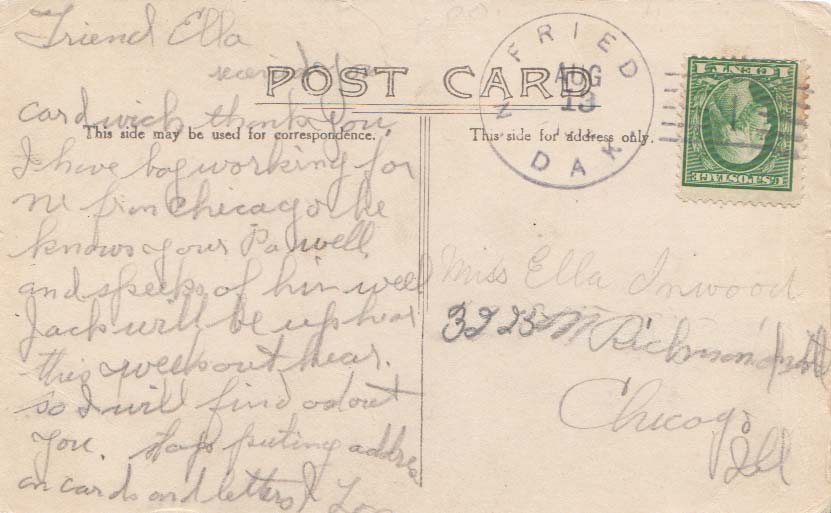 Friend Ella
POST CARD
card wich thank you,
This side may be used for correspondence.
I have boy working for
me from Chicago he
knows your Pa well
and speeks of him well
Jack will be up hear
this week out hear.
so I will find odout
you. stop puting addres
on cards and letters
FRIED
AUG
13
N. DAK
1 CENT 1
U.S. POSTAGE
This side for address only.
Miss Ella Inwood
3223 Richmond
Chicago
Ill